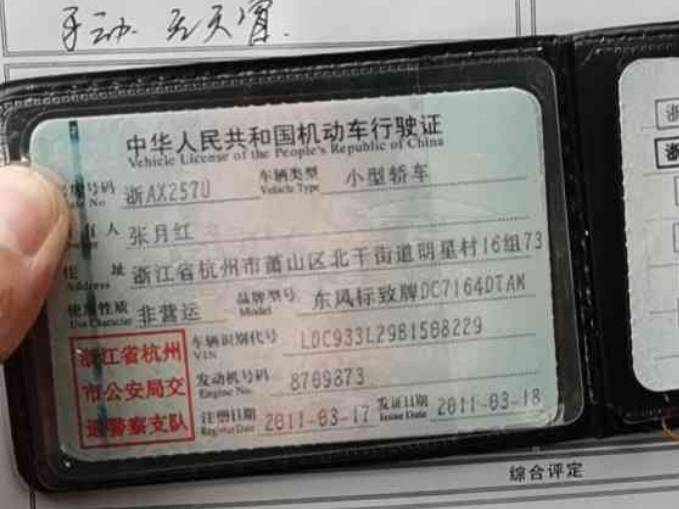 手动 无天窗.
中华人民共和国机动车行驶证
Vehicle License of the People's Republic of China
号码 浙AX257U 车辆类型 小型轿车
No Vehicle Type
有人 张月红
住 址 浙江省杭州市萧山区北干街道明星村16组73
Address
使用性质 非营运 品牌型号 东风标致牌DC7164DTAM
Use Character Model
浙江省杭州
市公安局交
通警察支队
车辆识别代号 LDC933L29B1508229
VIN
发动机号码 8709873
Engine No.
注册日期 2011-03-17 发证日期 2011-03-18
Register Date Issue Date
浙
综合评定